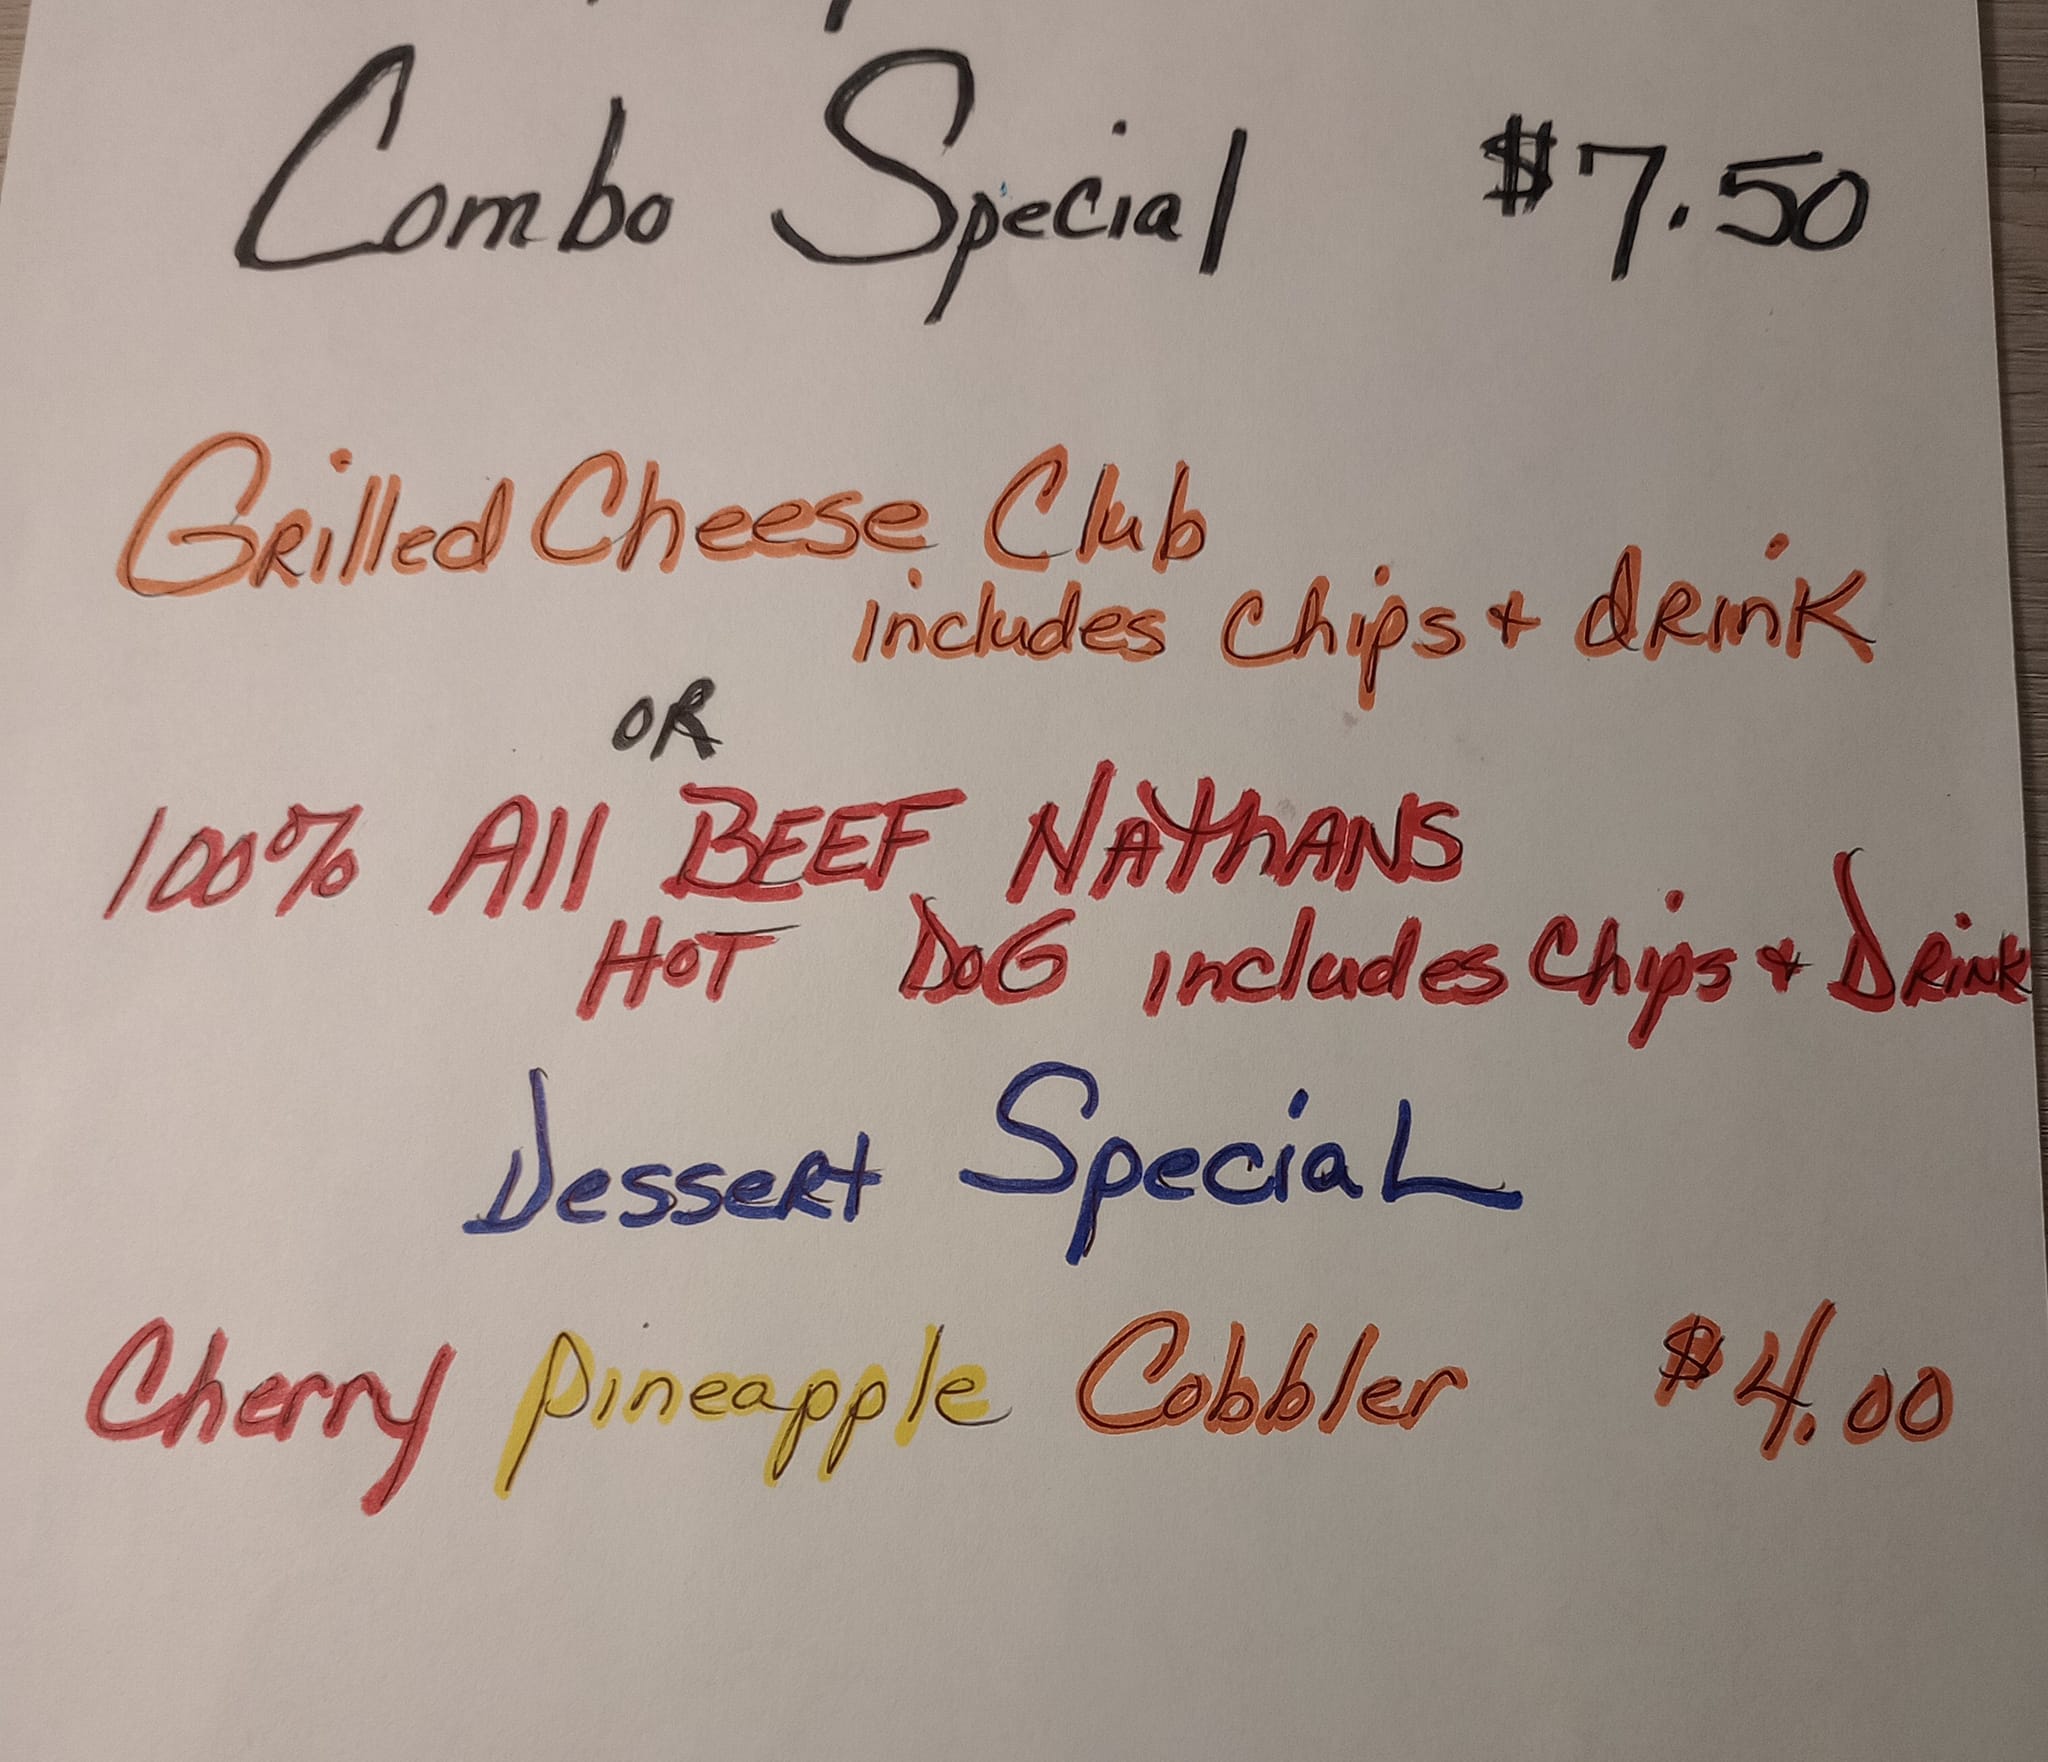 Combo Special $7.50
Grilled Cheese Club
includes Chips + drink
OR
100% All BEEF NAthANS
HOT DOG includes Chips + Drink
Dessert Special
Cherry Pineapple Cobbler $4.00